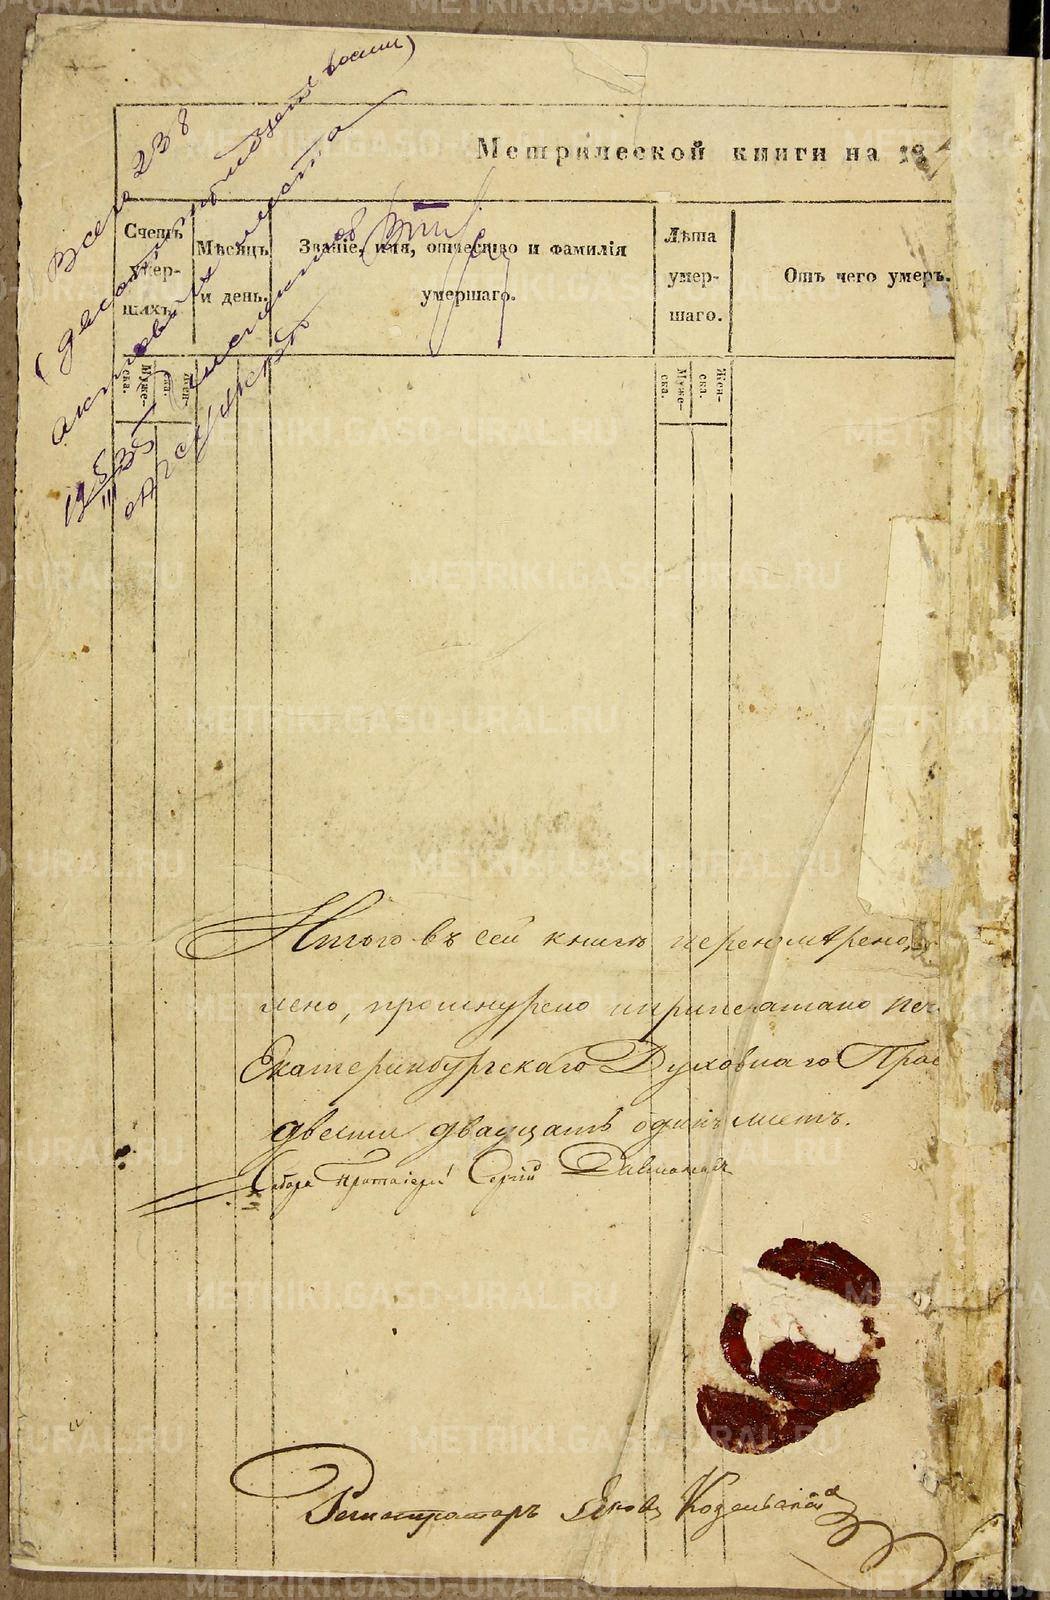 Всего 238
(двести тридцать восемь)
актовых листа
19 5/III 35
Метрической книги на 18
Счетъ умер-шихъ.
Мѣсяцъ и день.
Званіе, имя, отчество и фамилія умершаго.
Лѣта умер-шаго.
Отъ чего умеръ.
Муже-ска.
Жен-ска.
Муже-ска.
Жен-ска.
Итого въ сей книгѣ перенумѣрено,
лено, прошнурено и припечатано печ
Екатеринбургскаго Духовнаго Прав
двести двадцать одинъ листъ.
Собора Протоіерей Сергій
Регистраторъ Яковъ Козельскій